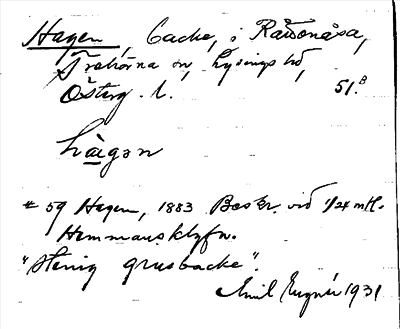 Hagen, backe, i Rävonäsa,
Trehörna sn, Lysings hd,
Österg. l. 51.B
hàgən
# 59 Hagen, 1883 Beskr. vid 1/24 mtl.
Hemmansklyfn.
"Stenig grusbacke".
Emil Eugnér 1931